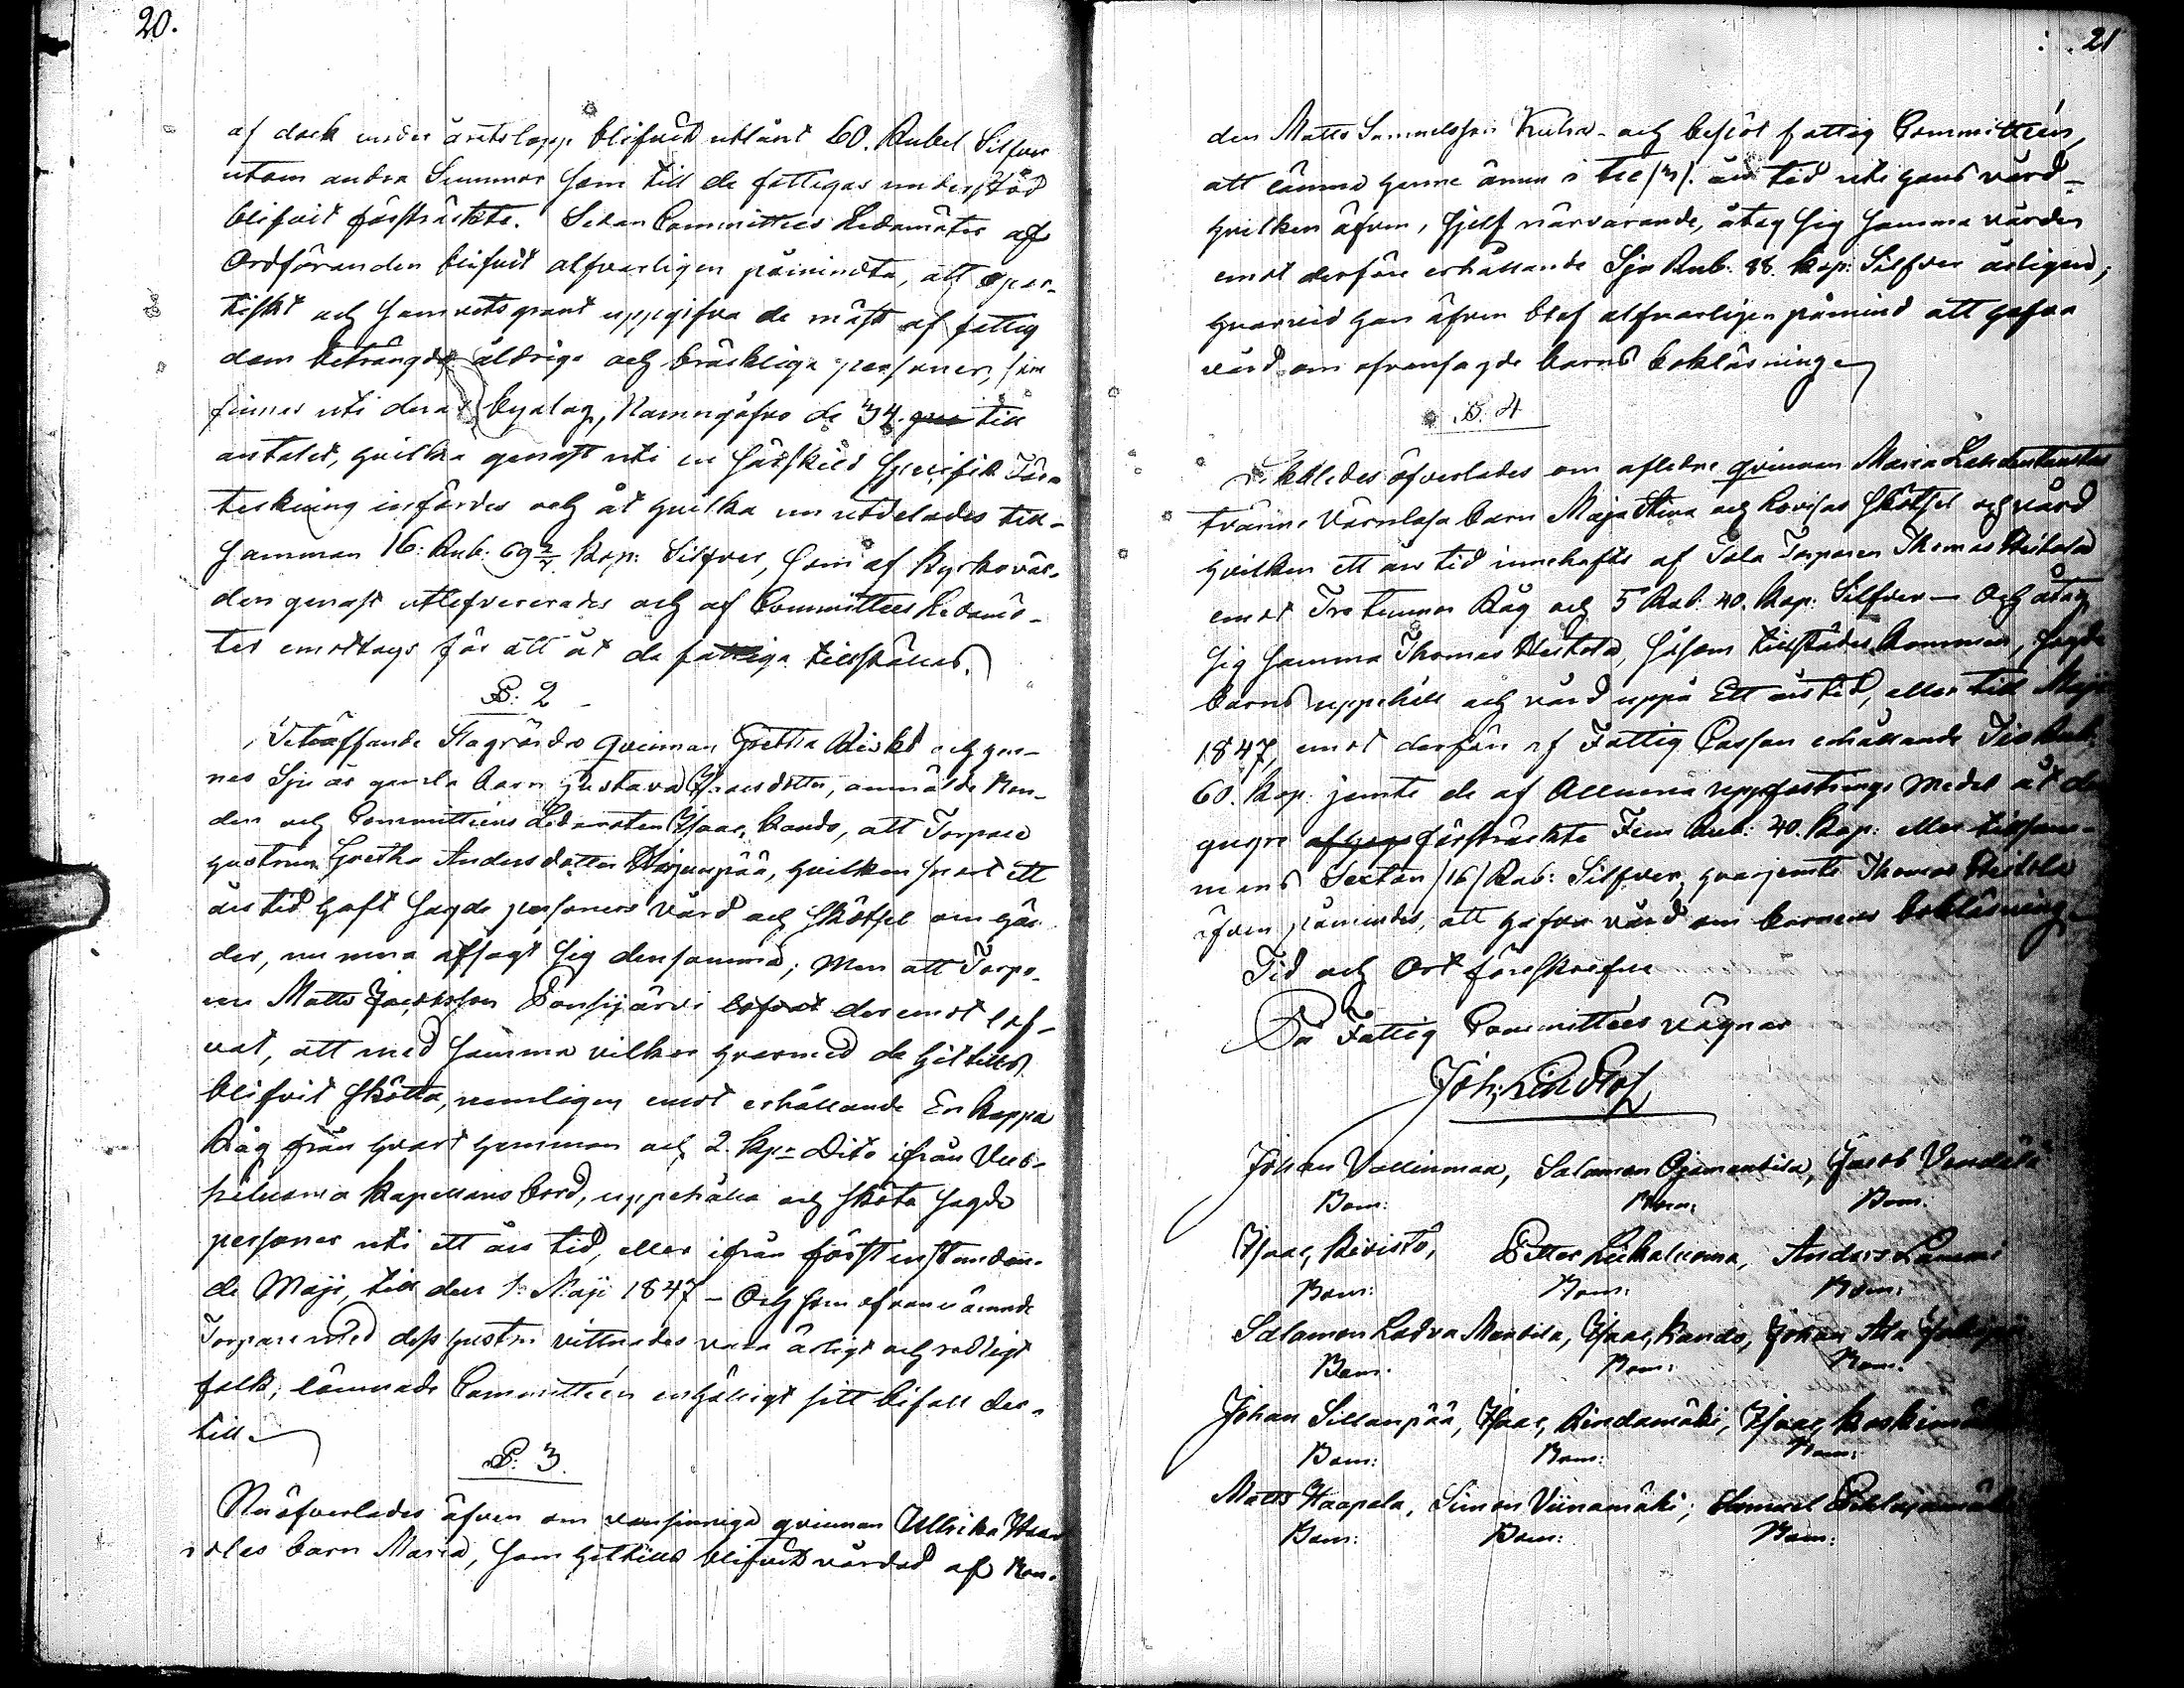 20.
af dock under åretslopp blifvit utlånt 60. Rubel Silfver
utom andra Summor som till de fattigas understöd
blifvit försträckte. Sedan Committees Ledamöter af
Ordföranden blifvit alfvarligen påmindta, att opar-
tiskt och samvetsgrant uppgifva de mäst af fattig
dom beträngda åldriga och bräckliga personer, som
finnes uti deras byalag, Namngåfvo de 34. till
antalet, hvilka genast uti en särskild specifik För-
teckning infördes och åt hvilka nu utdelades till-
samman 16: Rub. 69 2/7 Kop: Silfver, som af Kyrkovär-
den genast utlefvererades och af Committees Ledamö-
ter emottogs för att åt de fattiga tillställas.
§. 2
Beträffande Slagrörde qvinnan Gretha Riski och hen-
nes Sju år gamla barn Gustava Isaacsdotter, anmälde Bon-
den och Committeens Ledamoten Isaac Kando, att Torpare
hustrun Gretha Andersdotter, hvilken snart ett
års tid haft sagde personers vård och skötsel om hän-
der, nu mera afsagt sig densamma; Men att Torpa-
ren Matts Jacobsson deremot lof-
vat, att med samma vilkor hvarmed de hittills
blifvit skötta, nemligen emot erhållande En kappa
Råg från hvart hemman och 2. kpr Dito ifrån
Kapellans bord, uppehålla och sköta sagde
personer uti ett års tid, eller ifrån först instundan-
de Maji, till den 1. Maji 1847 - Och som ofvannämnde
Torpare med dess hustru vittnades vara ärligt och redligt
folk; lämnade Committeén enhälligt sitt bifall der-
till.
§. 3.
Nu öfverlades äfven om vansinniga qvinnan Ullrika
barn Maria, som hittills blifvit vårdad af Bon-
21
den Matts Samuelsson och beslöt fattig Committeén,
att lämna henne ännu i tre /3/. års tid uti hans vård -
hvilken äfven, sjelf närvarande, åtog sig samma vården
emot derföre erhållande Sju Rub. 88. kop: Silfver årligen;
hvarvid han äfven blef alfvarligen påmind att hafva
vård om ofvansagde barns bokläsning
§. 4
öfverlades om aflidne qvinnan Maria Lahdentausta
tvänne Värnlösa barn Maja Stina och Lovisas skötsel och vård
hvilken ett års tid innehafts af Torparen Thomas
emot Tre tunnor Råg och 5 Rub. 40. kop: Silfver - Och åtog
sig samma Thomas, såsom tillstädes kommen, sagde
barns uppehåll och vård uppå Ett års tid, eller till Maji
1847, emot derföre af Fattig Cassan erhållande Tio Rub:
60. kop. jemte de af Allmänna uppfostrings Medel åt de
yngre försträckte Fem Rub: 40. kop: eller tillsam-
mans Sexton /16/ Rub: Silfver, hvarjemte Thomas
äfven påmindes, att hafva vård om barnens bokläsning
Tid och Ort föreskrefne
På Fattig Committees vägnar
Joh: Lindlöf
Johan Vallinmaa, Salamon Ojamantila, Jacob
Bom: Bom: Bom:
Isaac Kivistö, Petter Leikaluoma, Anders Lammi
Bom: Bom: Bom:
Salamon Ladva Mantila, Isaac Kando, Johan Ala
Bom: Bom: Bom:
Johan Sillanpää, Isaac Rindamäki, Isaac Koskimäki
Bom: Bom: Bom:
Matts Haapala, Simon Viinamäki, Samuel
Bom: Bom: Bom: